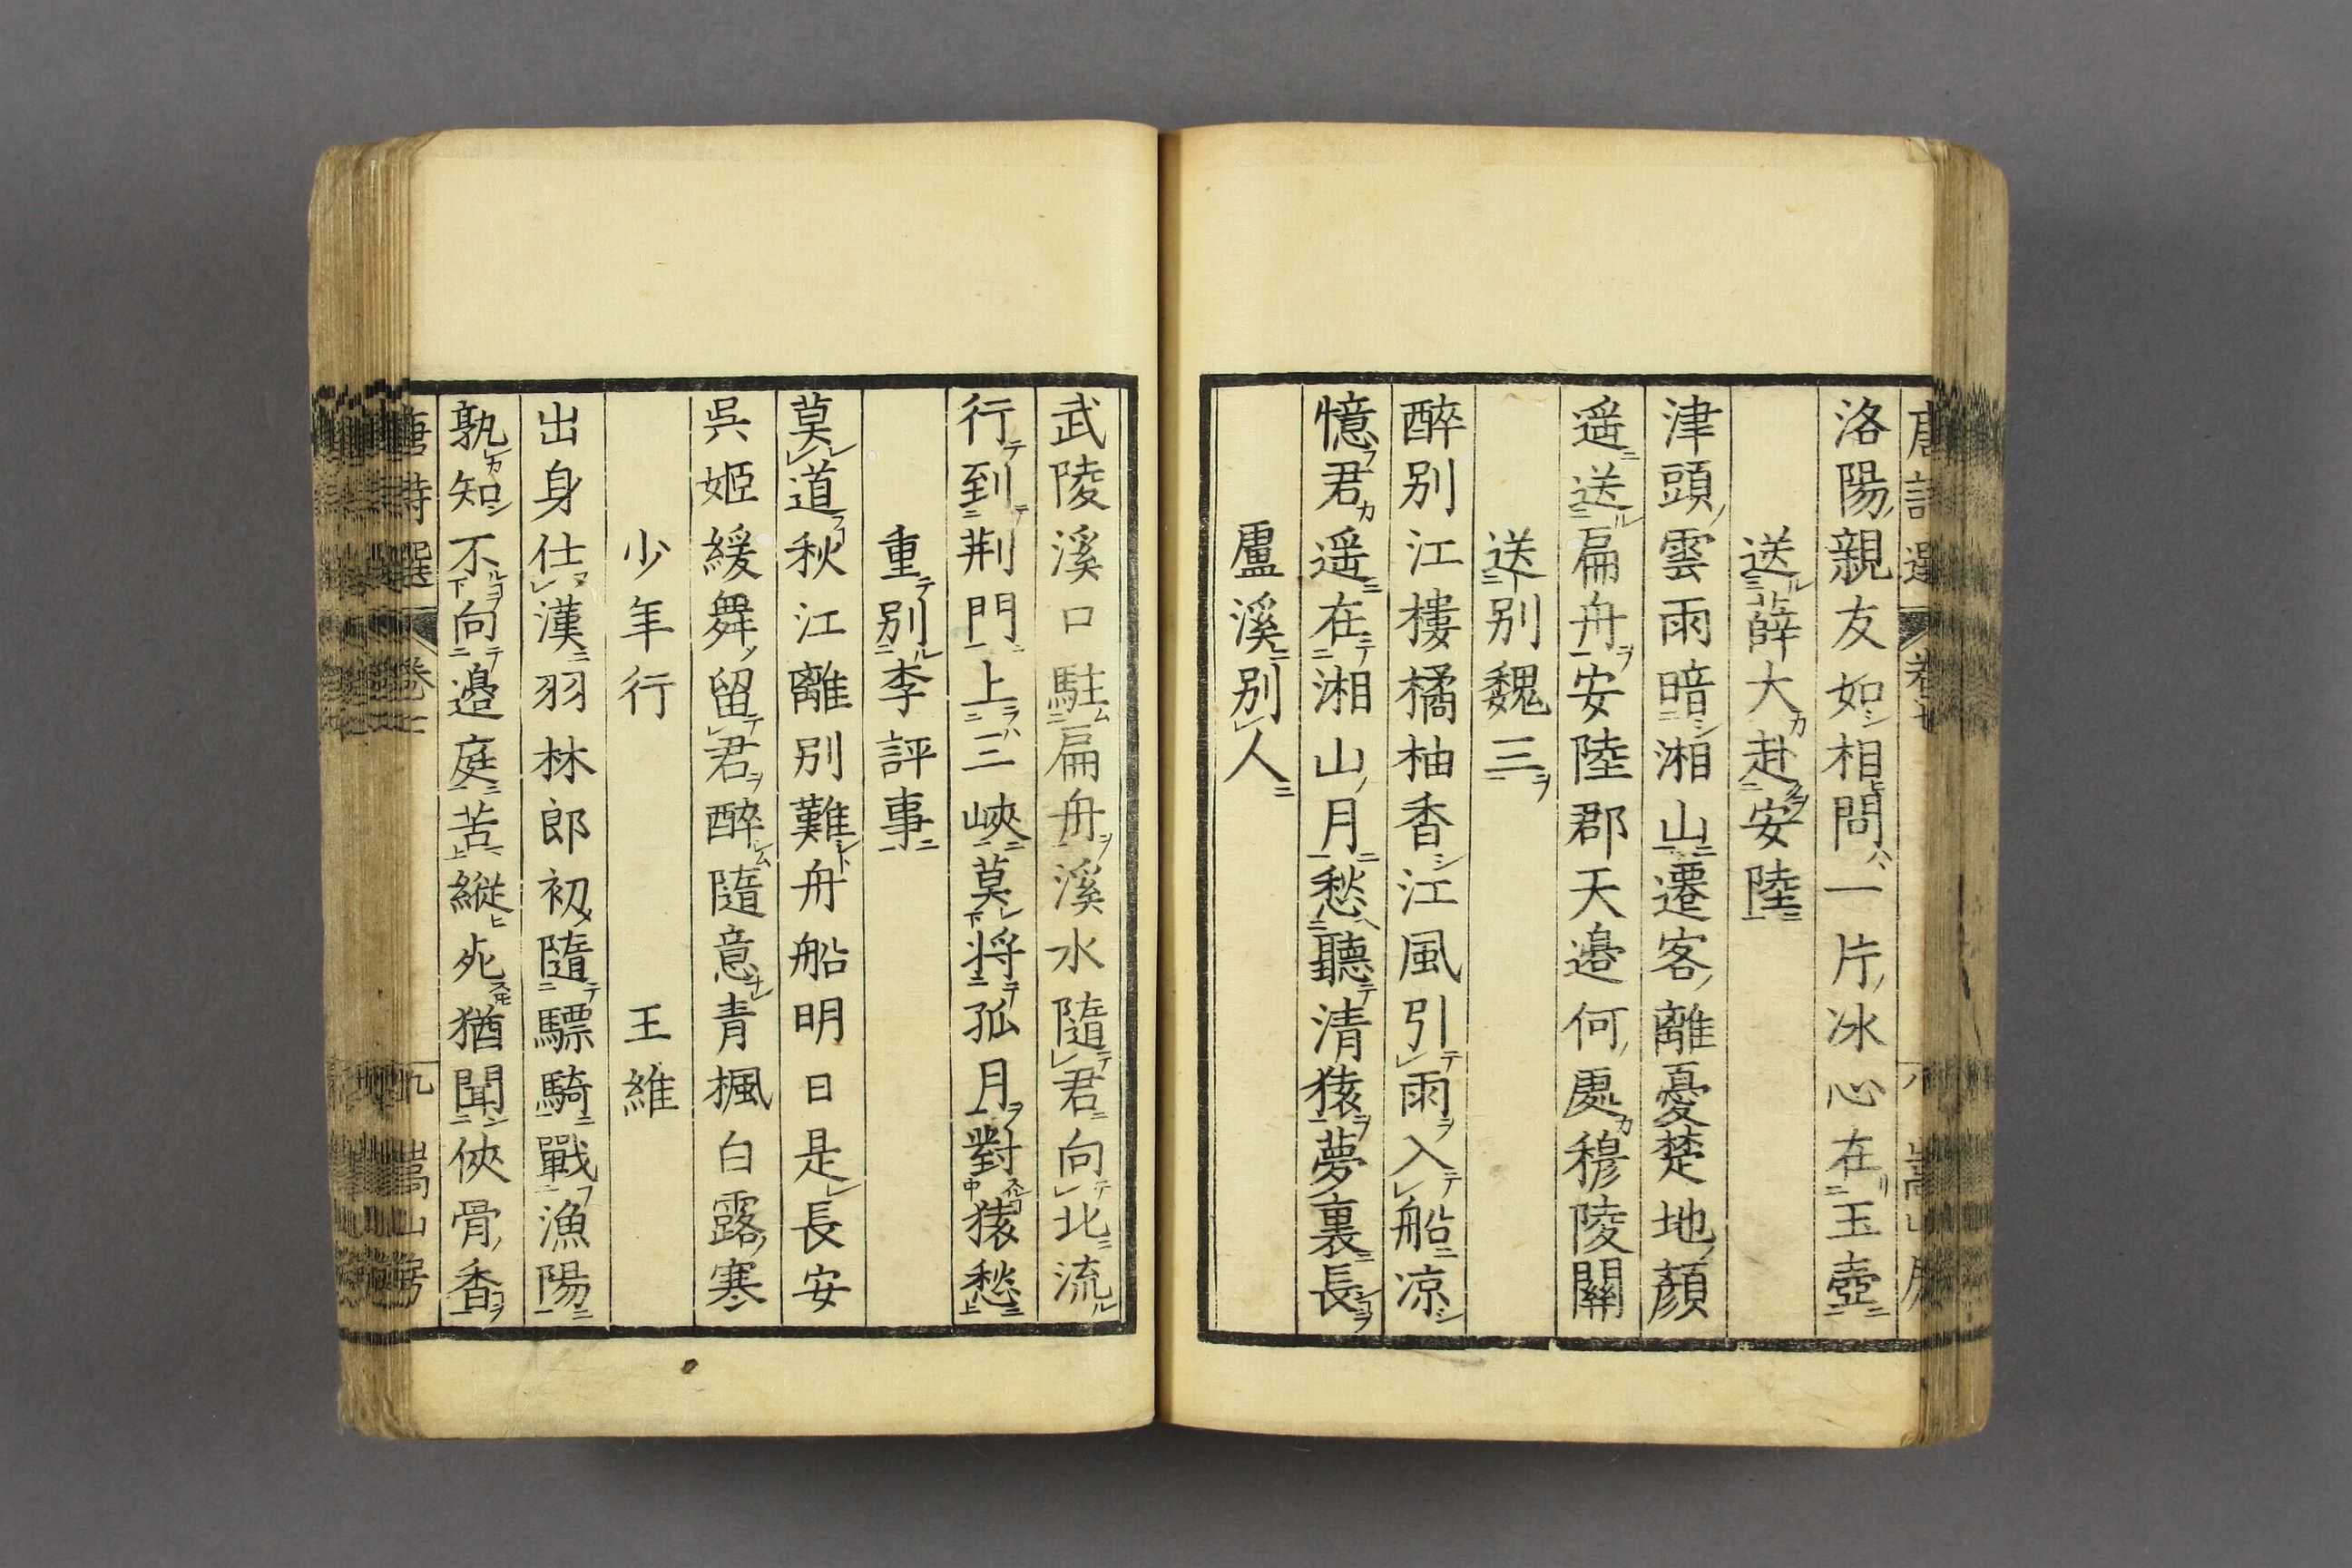 洛陽親友如相問一片冰心在玉壺
送薛大赴安陸
津頭雲雨暗湘山遷客離憂楚地顔
遥送扁舟安陸郡天邉何處穆陵關
送別魏三
醉別江樓橘柚香江風引雨入船凉
憶君遥在湘山月愁聽清猿夢裏長
盧溪別人
武陵溪口駐扁舟溪水隨君向北流
行到荆門上三峽莫將孤月對猿愁
重別李評事
莫道秋江離別難舟船明日是長安
吳姬緩舞留君醉隨意青楓白露寒
少年行 王維
出身仕漢羽林郎初隨驃騎戰漁陽
孰知不向邉庭苦縱死猶聞俠骨香
唐詩選 卷七 九 嵩山房